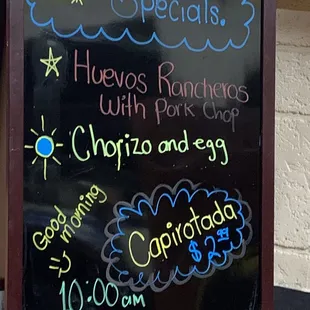 Specials.
Huevos Rancheros
with Pork Chop
Chorizo and egg
Good
morning
Capirotada
$ 2.99
10:00 am